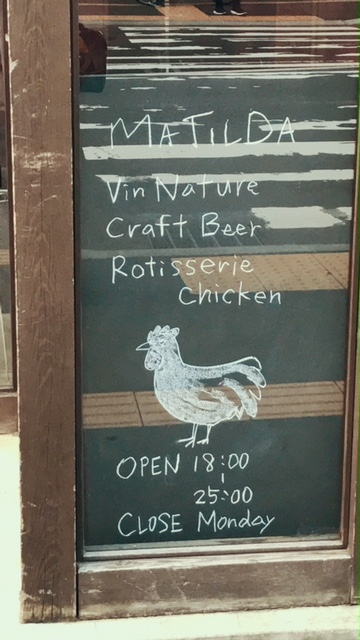 MATILDA
Vin Nature
Craft Beer
Rotisserie
Chicken
OPEN 18:00
25:00
CLOSE Monday